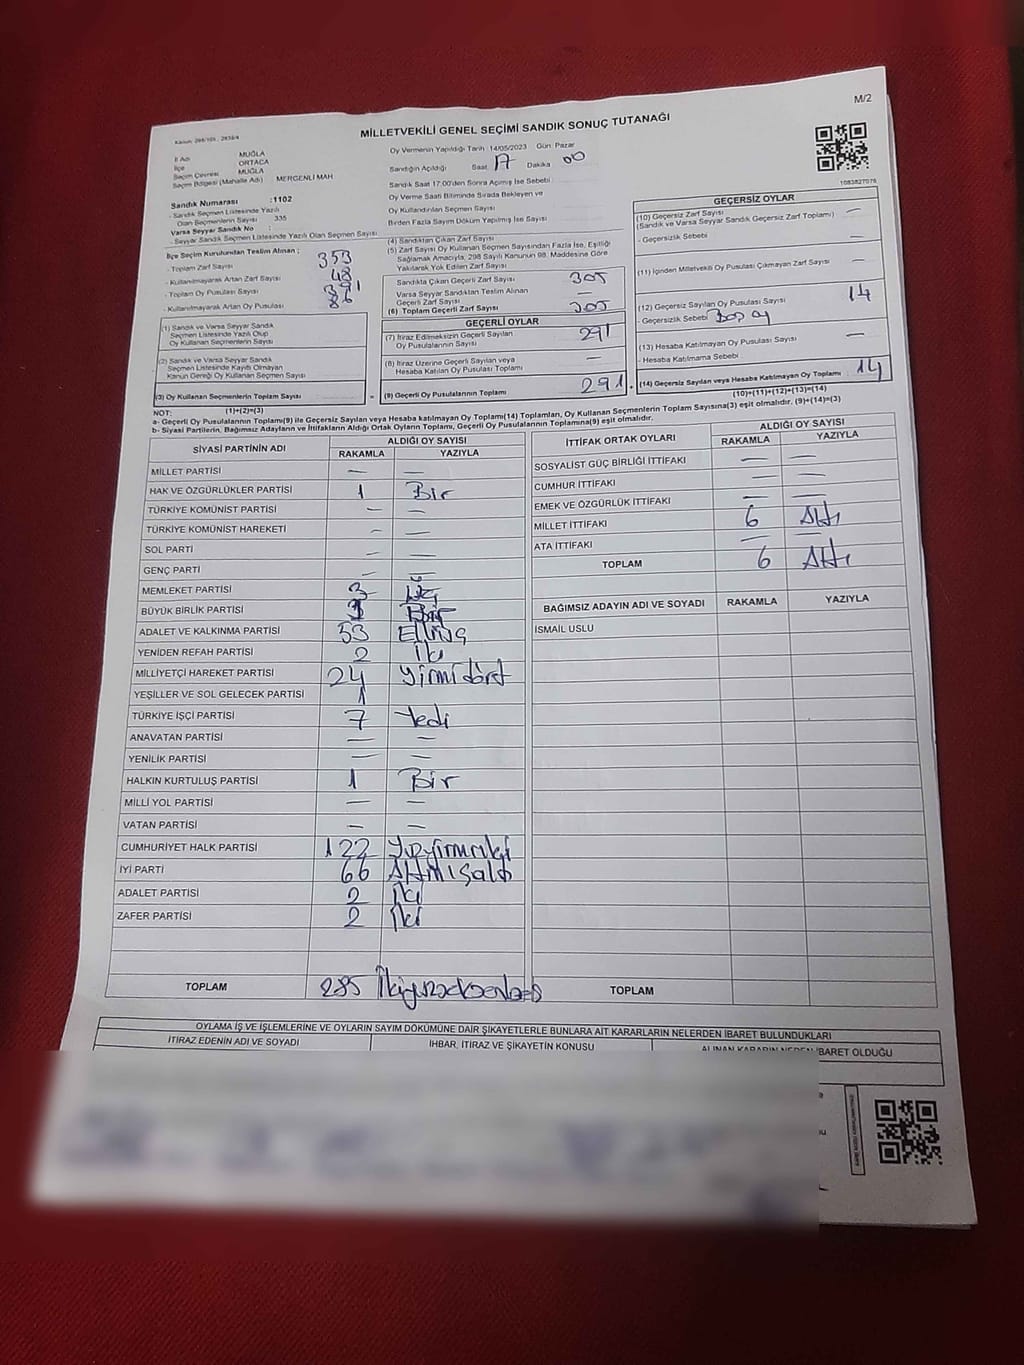 M/2
Kanun: 298/105 , 2839/4
MİLLETVEKİLİ GENEL SEÇİMİ SANDIK SONUÇ TUTANAĞI
İl Adı MUĞLA
İlçe ORTACA
Seçim Çevresi MUĞLA
Seçim Bölgesi (Mahalle Adı) MERGENLİ MAH
Oy Vermenin Yapıldığı Tarih :14/05/2023 Gün: Pazar
Sandığın Açıldığı Saat 17 Dakika 00
Sandık Saat 17.00'den Sonra Açılmış İse Sebebi
Oy Verme Saati Bitiminde Sırada Bekleyen ve
Oy Kullandırılan Seçmen Sayısı
Birden Fazla Sayım Döküm Yapılmış İse Sayısı
1083827076
Sandık Numarası :1102
- Sandık Seçmen Listesinde Yazılı
Olan Seçmenlerin Sayısı 335
Varsa Seyyar Sandık No :
- Seyyar Sandık Seçmen Listesinde Yazılı Olan Seçmen Sayısı
İlçe Seçim Kurulundan Teslim Alınan ;
- Toplam Zarf Sayısı 353
- Kullanılmayarak Artan Zarf Sayısı 48
- Toplam Oy Pusulası Sayısı
- Kullanılmayarak Artan Oy Pusulası 86
(1) Sandık ve Varsa Seyyar Sandık
Seçmen Listesinde Yazılı Olup
Oy Kullanan Seçmen Sayısı
(2) Sandık ve Varsa Seyyar Sandık
Seçmen Listesinde Kayıtlı Olmayan
Kanun Gereği Oy Kullanan Seçmen Sayısı
(3) Oy Kullanan Seçmenlerin Toplam Sayısı =
(1)+(2)=(3)
(4) Sandıktan Çıkan Zarf Sayısı
(5) Zarf Sayısı Oy Kullanan Seçmen Sayısından Fazla İse, Eşitliği
Sağlamak Amacıyla, 298 Sayılı Kanunun 98. Maddesine Göre
Yakılarak Yok Edilen Zarf Sayısı
Sandıkta Çıkan Geçerli Zarf Sayısı 305
Varsa Seyyar Sandıktan Teslim Alınan
Geçerli Zarf Sayısı
(6) Toplam Geçerli Zarf Sayısı 305
GEÇERLİ OYLAR
(7) İtiraz Edilmeksizin Geçerli Sayılan
Oy Pusulalarının Sayısı 291
(8) İtiraz Üzerine Geçerli Sayılan veya
Hesaba Katılan Oy Pusulası Toplamı —
(9) Geçerli Oy Pusulalarının Toplamı 291 +
GEÇERSİZ OYLAR
(10) Geçersiz Zarf Sayısı
(Sandık ve Varsa Seyyar Sandık Geçersiz Zarf Toplamı) —
- Geçersizlik Sebebi —
(11) İçinden Milletvekili Oy Pusulası Çıkmayan Zarf Sayısı —
(12) Geçersiz Sayılan Oy Pusulası Sayısı 14
- Geçersizlik Sebebi Boş oy
(13) Hesaba Katılmayan Oy Pusulası Sayısı —
- Hesaba Katılmama Sebebi
(14) Geçersiz Sayılan veya Hesaba Katılmayan Oy Toplamı 14
(10)+(11)+(12)+(13)=(14)
NOT:
a- Geçerli Oy Pusulalarının Toplamı(9) ile Geçersiz Sayılan veya Hesaba katılmayan Oy Toplamı(14) Toplamları, Oy Kullanan Seçmenlerin Toplam Sayısına(3) eşit olmalıdır. (9)+(14)=(3)
b- Siyasi Partilerin, Bağımsız Adayların ve İttifakların Aldığı Ortak Oyların Toplamı, Geçerli Oy Pusulalarının Toplamına(9) eşit olmalıdır.
SİYASİ PARTİNİN ADI ALDIĞI OY SAYISI
RAKAMLA YAZIYLA
MİLLET PARTİSİ — —
HAK VE ÖZGÜRLÜKLER PARTİSİ 1 Bir
TÜRKİYE KOMÜNİST PARTİSİ — —
TÜRKİYE KOMÜNİST HAREKETİ — —
SOL PARTİ — —
GENÇ PARTİ — —
MEMLEKET PARTİSİ 3 Üç
BÜYÜK BİRLİK PARTİSİ 1 Bir
ADALET VE KALKINMA PARTİSİ 53 Elliüç
YENİDEN REFAH PARTİSİ 2 İki
MİLLİYETÇİ HAREKET PARTİSİ 24 Yirmidört
YEŞİLLER VE SOL GELECEK PARTİSİ 1
TÜRKİYE İŞÇİ PARTİSİ 7 Yedi
ANAVATAN PARTİSİ — —
YENİLİK PARTİSİ — —
HALKIN KURTULUŞ PARTİSİ 1 Bir
MİLLİ YOL PARTİSİ — —
VATAN PARTİSİ — —
CUMHURİYET HALK PARTİSİ 122 Yüzyirmiiki
İYİ PARTİ 66 Altmışaltı
ADALET PARTİSİ 2 İki
ZAFER PARTİSİ 2 İki
TOPLAM 285 İkiyüzseksenbeş
İTTİFAK ORTAK OYLARI ALDIĞI OY SAYISI
RAKAMLA YAZIYLA
SOSYALİST GÜÇ BİRLİĞİ İTTİFAKI — —
CUMHUR İTTİFAKI — —
EMEK VE ÖZGÜRLÜK İTTİFAKI — —
MİLLET İTTİFAKI 6 Altı
ATA İTTİFAKI — —
TOPLAM 6 Altı
BAĞIMSIZ ADAYIN ADI VE SOYADI RAKAMLA YAZIYLA
İSMAİL USLU
TOPLAM
OYLAMA İŞ VE İŞLEMLERİNE VE OYLARIN SAYIM DÖKÜMÜNE DAİR ŞİKAYETLERLE BUNLARA AİT KARARLARIN NELERDEN İBARET BULUNDUKLARI
İTİRAZ EDENİN ADI VE SOYADI İHBAR, İTİRAZ VE ŞİKAYETİN KONUSU ALINAN KARARIN NEDEN İBARET OLDUĞU